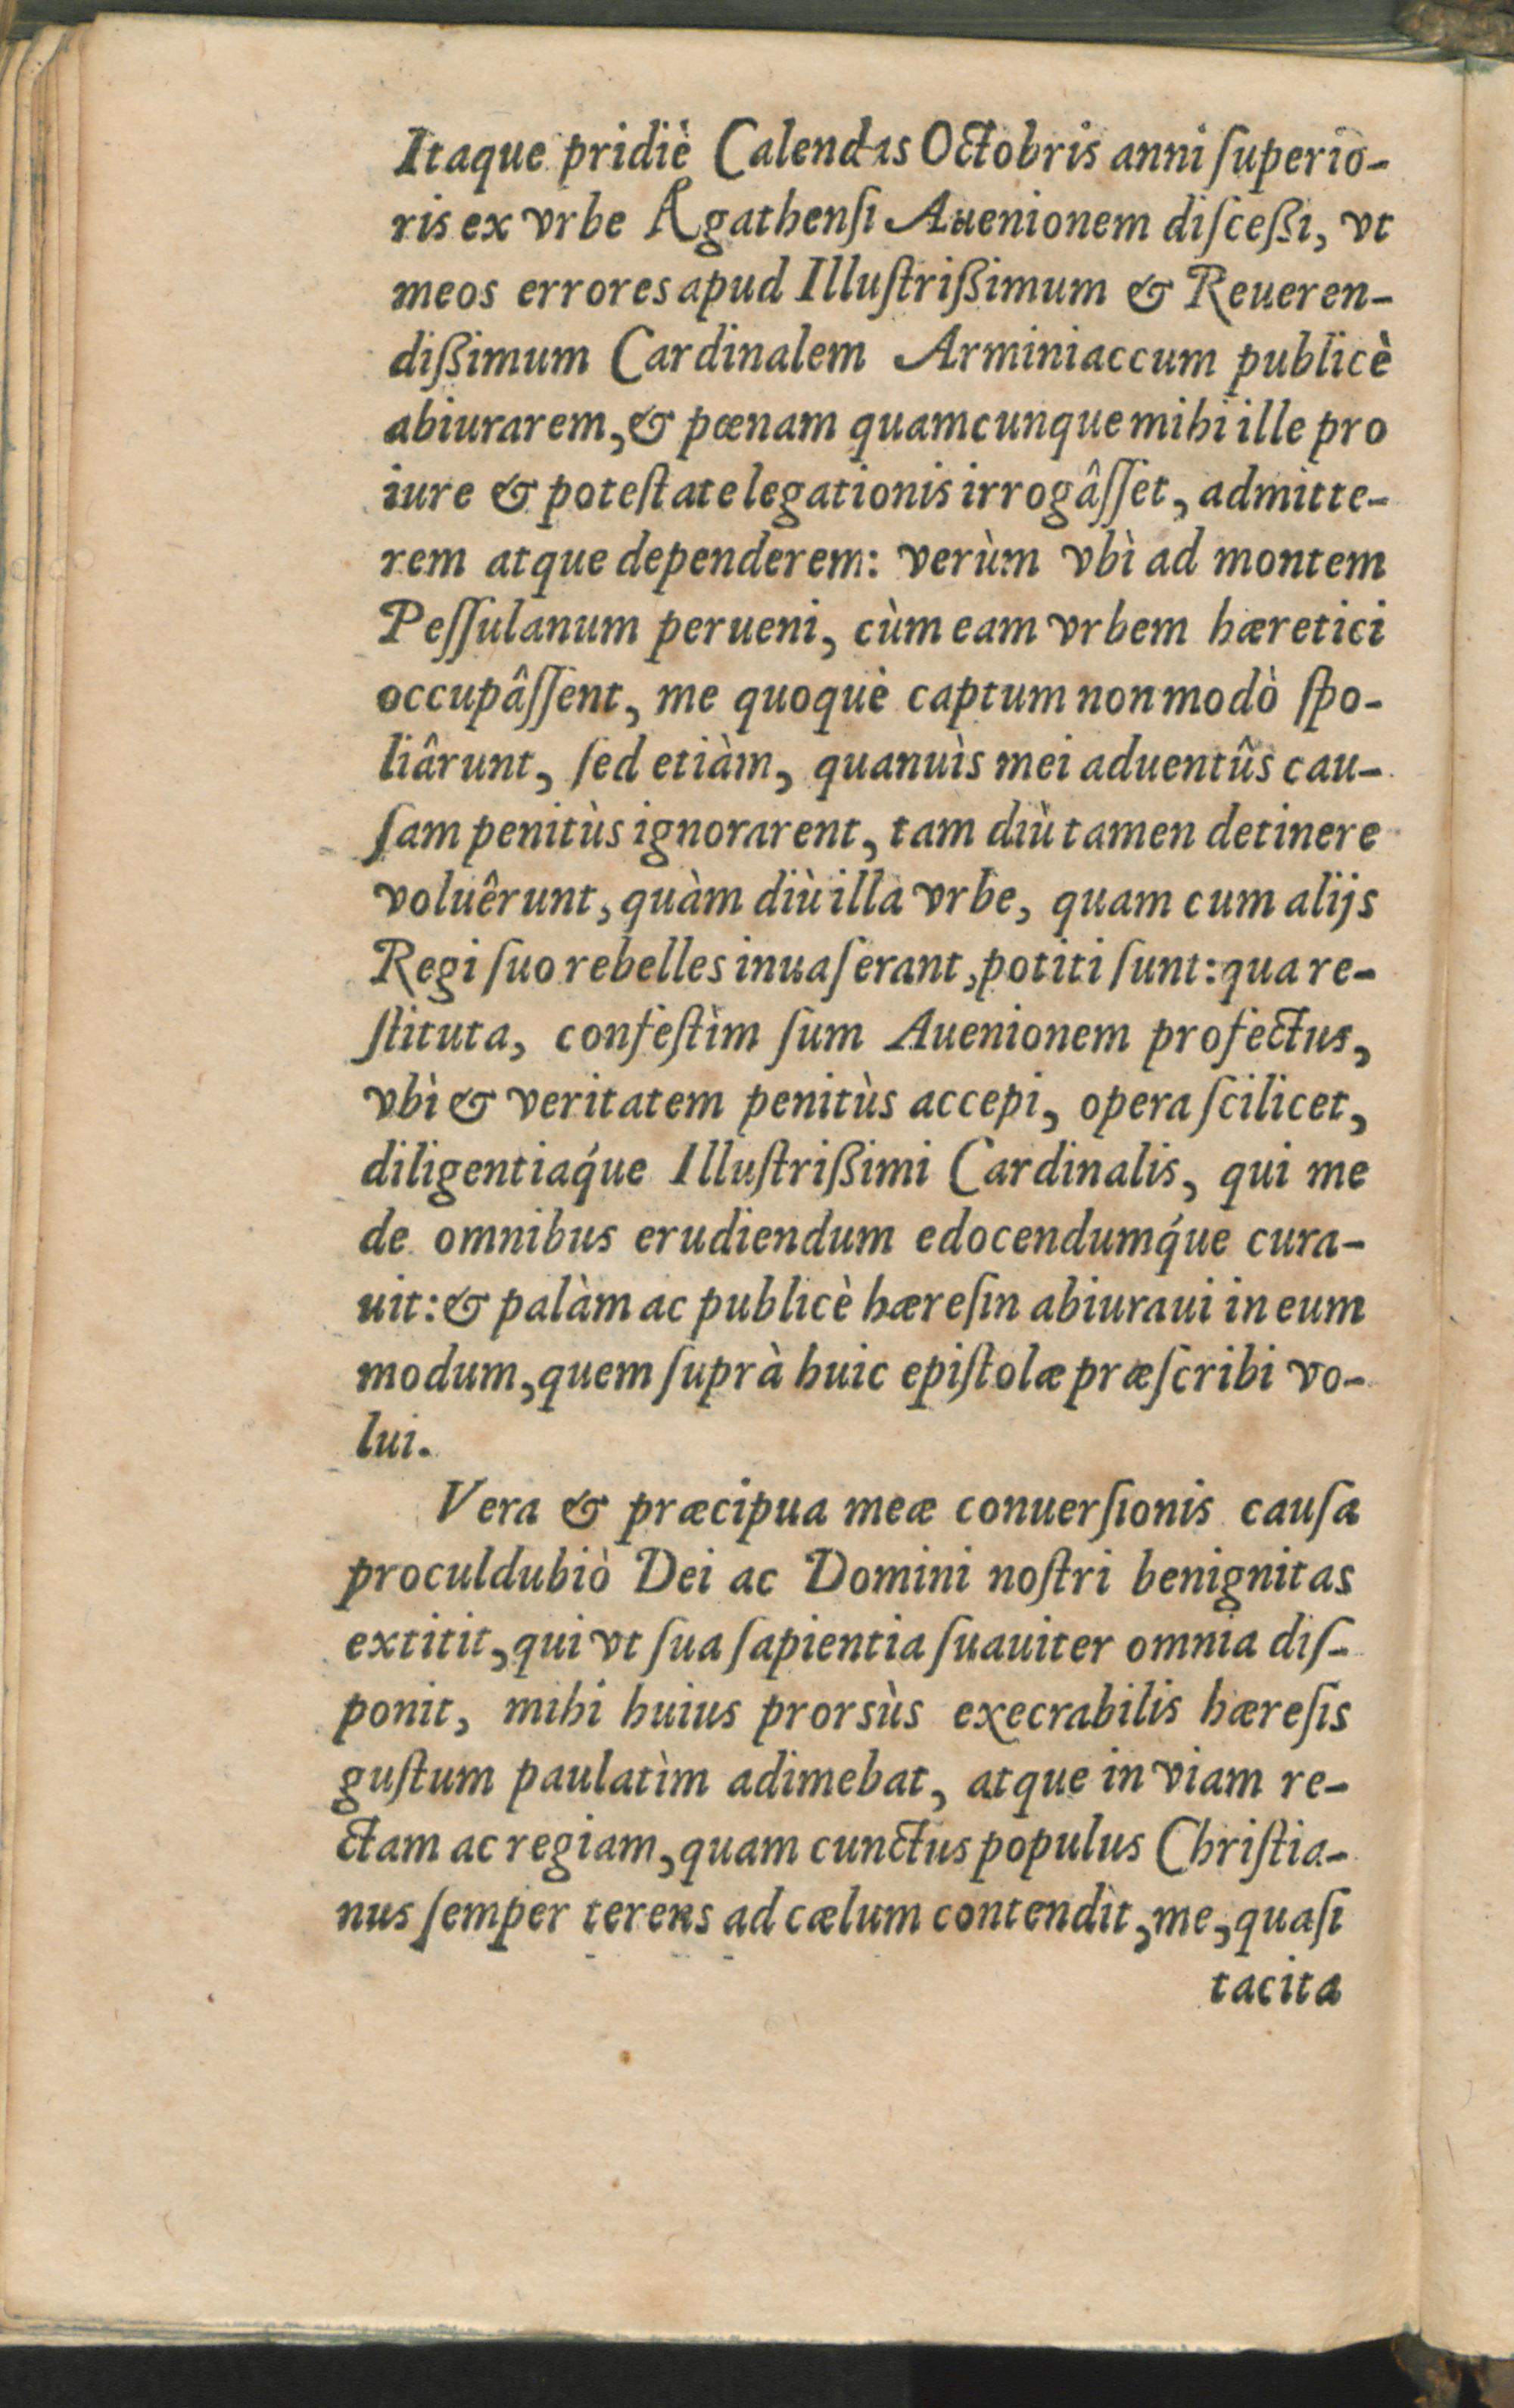 Itaque pridiè Calendas Octobris anni ſuperio-
ris ex vrbe Agathenſi Auenionem diſceßi, vt
meos errores apud Illuſtrißimum & Reueren-
dißimum Cardinalem Arminiaccum publicè
abiurarem, & pœnam quamcunque mihi ille pro
iure & poteſtate legationis irrogâſſet, admitte-
rem atque dependerem: verùm vbì ad montem
Peſſulanum perueni, cùm eam vrbem hæretici
occupâſſent, me quoquè captum non modò ſpo-
liârunt, ſed etiàm, quanuìs mei aduentûs cau-
ſam penitùs ignorarent, tam diù tamen detinere
voluêrunt, quàm diù illa vrbe, quam cum alijs
Regi ſuo rebelles inuaſerant, potiti ſunt: qua re-
ſtituta, confeſtìm ſum Auenionem profectus,
vbì & veritatem penitùs accepi, opera ſcilicet,
diligentiaq́ue Illuſtrißimi Cardinalis, qui me
de omnibus erudiendum edocendumq́ue cura-
uit: & palàm ac publicè hæreſin abiuraui in eum
modum, quem ſuprà huic epiſtolæ præſcribi vo-
lui.
Vera & præcipua meæ conuerſionis cauſa
proculdubiò Dei ac Domini noſtri benignitas
extitit, qui vt ſua ſapientia ſuauiter omnia diſ-
ponit, mihi huius prorsùs execrabilis hæreſis
guſtum paulatìm adimebat, atque in viam re-
ctam ac regiam, quam cunctus populus Chriſtia-
nus ſemper terens ad cælum contendit, me, quaſi
tacita